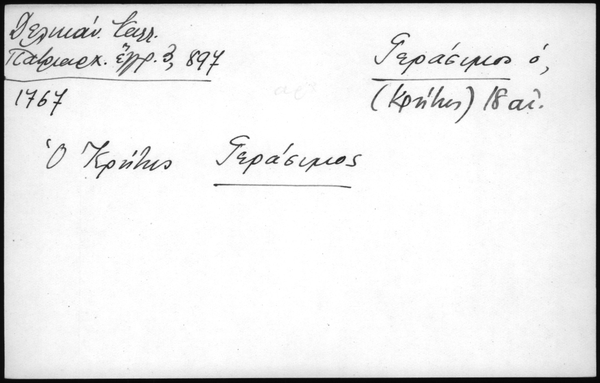 Δελικάν. Καλλ.
Πατριαρχ. ἔγγρ. 3, 897
1767
Γεράσιμος ὁ,
(Κρήτης) 18 αἰ.
Ὁ Κρήτης Γεράσιμος